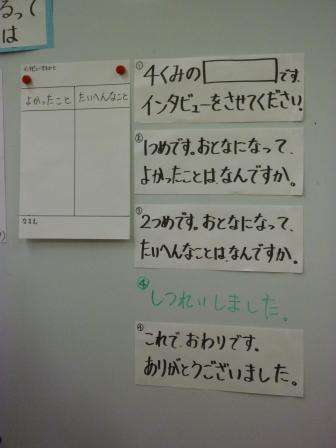 るって
は
よかったこと
たいへんなこと
なまえ
①
4くみの です。
インタビューをさせてください。
②
1つめです。おとなになって、
よかったことは、なんですか。
③
2つめです。おとなになって、
たいへんなことは、なんですか。
④
しつれいしました。
④
これで、おわりです。
ありがとうございました。